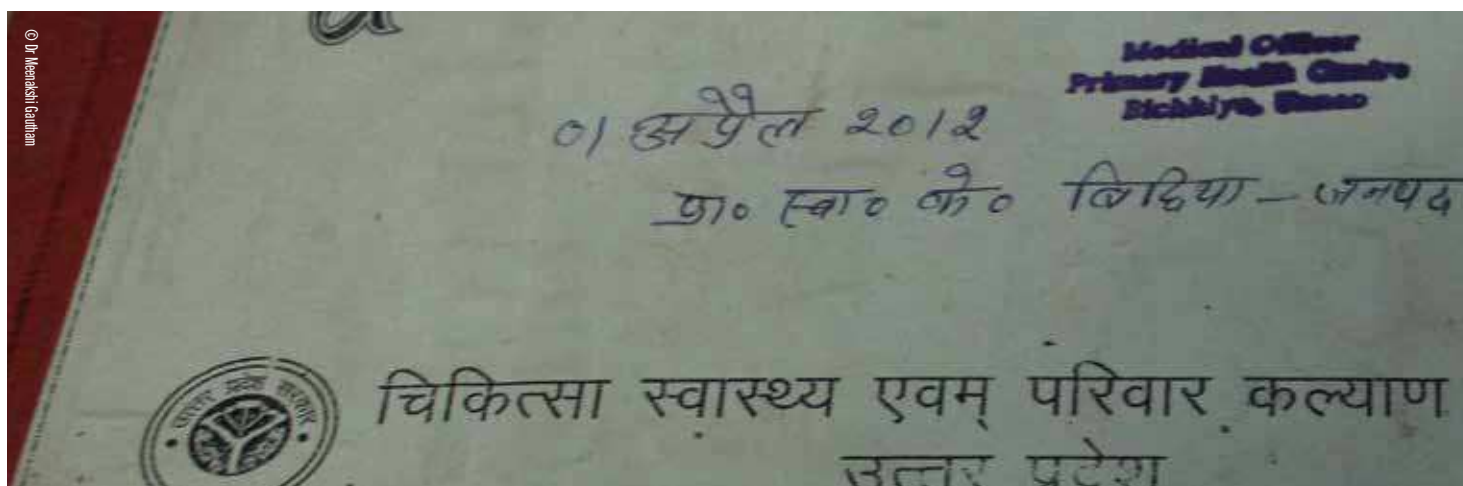 © Dr Meenakshi Gautham
Medical Officer
Primary Health Centre
Bichhiya, Unnao
01 अप्रैल २०१२
प्रा० स्वा० के० बिछिया - जनपद
चिकित्सा स्वास्थ्य एवम् परिवार कल्याण
उत्तर प्रदेश